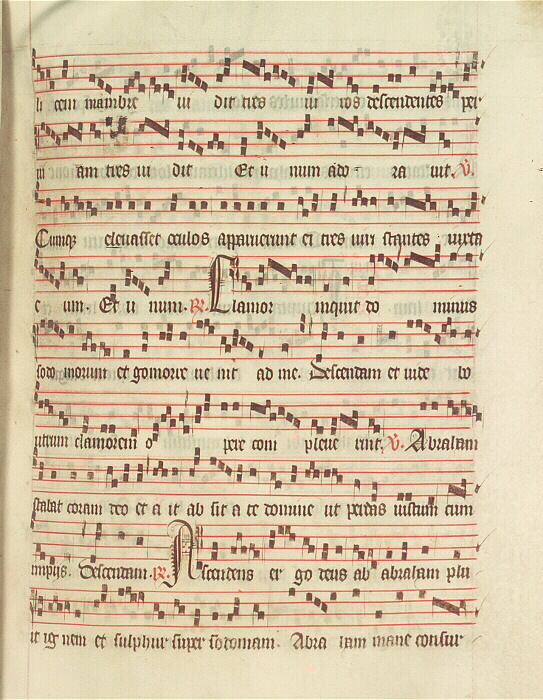 li cem mambre ui dit tres ui ros descendentes per
ui am tres ui dit Et u num ado ra uit. V.
Cumqz eleuasset oculos apparuerunt ei tres uiri stantes iuxta
e um. Et u num. R. Clamor inquit do minus
sodo morum et gomorre ue nit ad me. Descendam et uide bo
utrum clamorem o pere com pleue rint. V. Abraham
stabat coram deo et a it ab sit a te domine ut perdas iustum cum
impiis. Descendam. R. Ascendens er go deus ab abraham plu
it ig nem et sulphur super sodomam. Abra ham mane consur